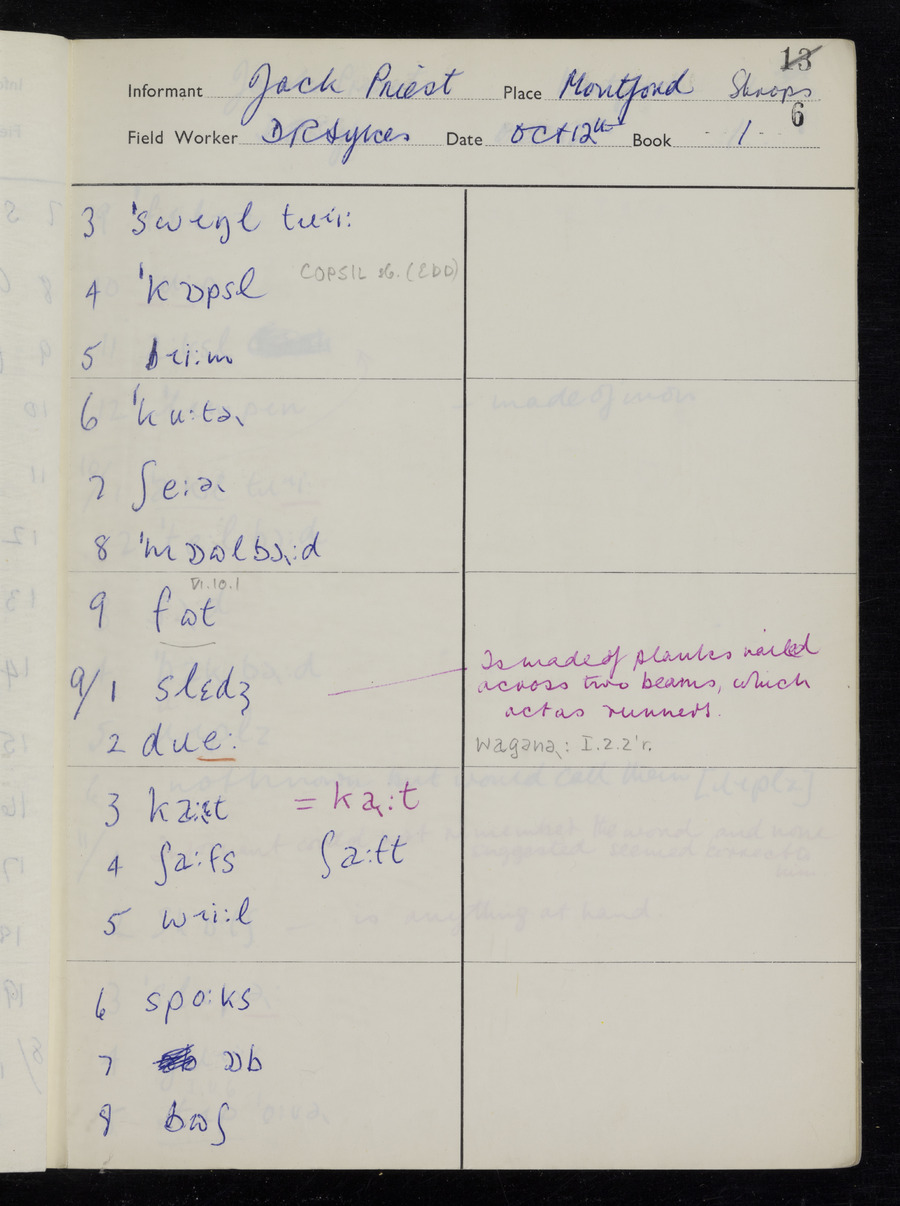 13
Informant Jack Priest Place Montford Shrops
6
Field Worker D R Sykes Date Oct 12th Book 1
3 ˈsweŋl tɹiː
4 ˈkɒpsl COPSIL sb. (EDD)
5 biːm
6 ˈkuːtəɻ
7 ʃeːəɻ
8 ˈmɒʊlbɔɻːd
VI.10.1
9 fʊt
9/1 sledʒ Is made of planks nailed
across two beams, which
act as runners.
2 dɹeː wagənəɻ: I.2.2'r.
3 kaːɻt = kaɻːt
4 ʃaːfs ʃaːft
5 wiːl
6 spoːks
7 ɒb
8 bʊʃ